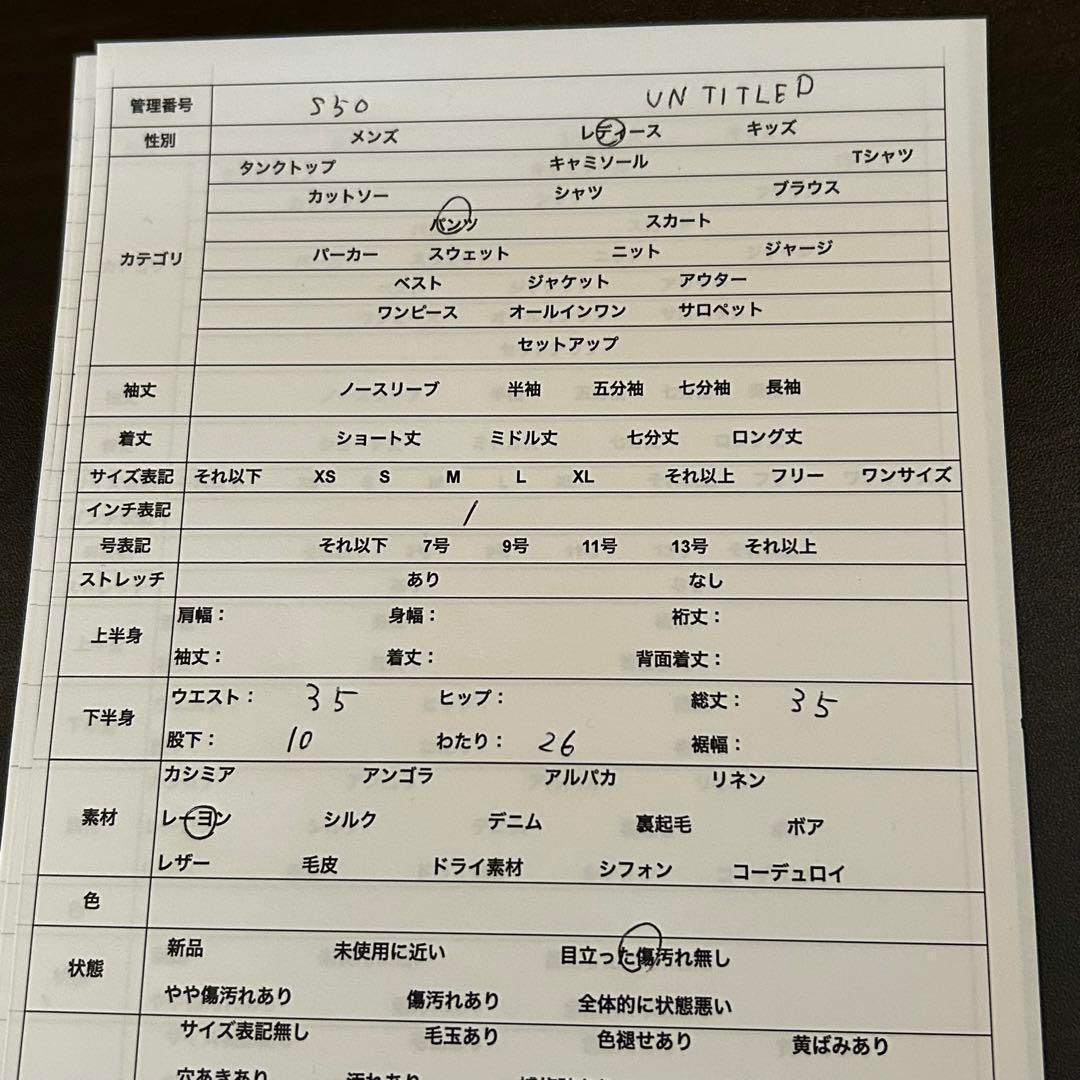 管理番号 S50 UNTITLED
性別 メンズ レディース キッズ
タンクトップ キャミソール Tシャツ
カットソー シャツ ブラウス
パンツ スカート
カテゴリ パーカー スウェット ニット ジャージ
ベスト ジャケット アウター
ワンピース オールインワン サロペット
セットアップ
袖丈 ノースリーブ 半袖 五分袖 七分袖 長袖
着丈 ショート丈 ミドル丈 七分丈 ロング丈
サイズ表記 それ以下 XS S M L XL それ以上 フリー ワンサイズ
インチ表記 /
号表記 それ以下 7号 9号 11号 13号 それ以上
ストレッチ あり なし
上半身 肩幅： 身幅： 裄丈：
袖丈： 着丈： 背面着丈：
下半身 ウエスト： 35 ヒップ： 総丈： 35
股下： 10 わたり： 26 裾幅：
カシミア アンゴラ アルパカ リネン
素材 レーヨン シルク デニム 裏起毛 ボア
レザー 毛皮 ドライ素材 シフォン コーデュロイ
色
状態 新品 未使用に近い 目立った傷汚れ無し
やや傷汚れあり 傷汚れあり 全体的に状態悪い
サイズ表記無し 毛玉あり 色褪せあり 黄ばみあり
穴あきあり 汚れあり